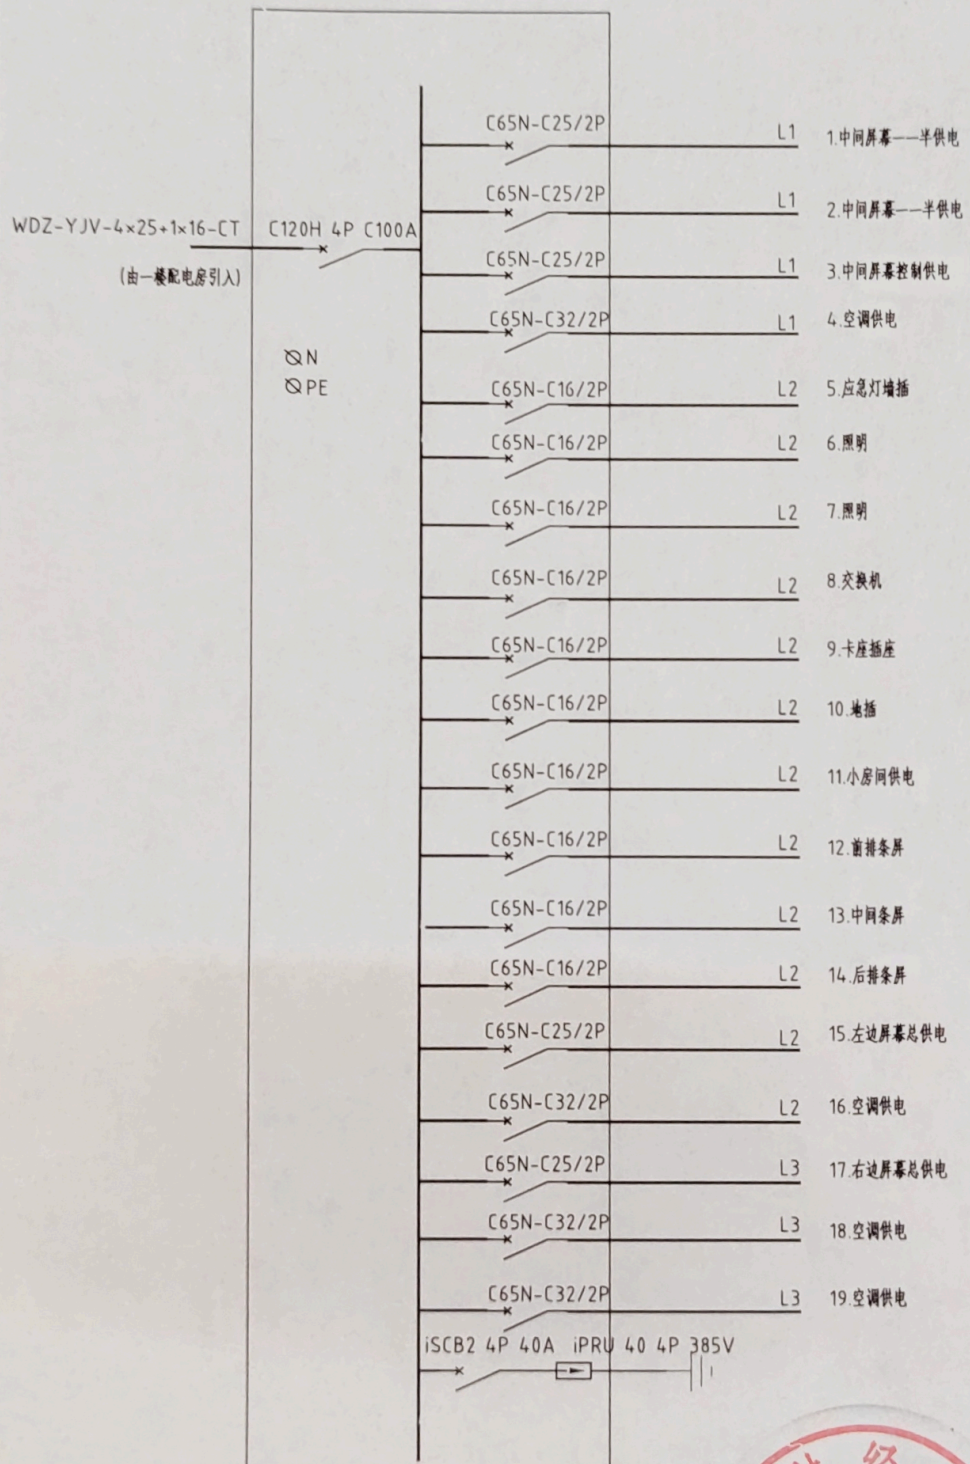 C65N-C25/2P L1 1.中间屏幕一一半供电
C65N-C25/2P L1 2.中间屏幕一一半供电
WDZ-YJV-4×25+1×16-CT C120H 4P C100A
(由一楼配电房引入)
C65N-C25/2P L1 3.中间屏幕控制供电
C65N-C32/2P L1 4.空调供电
N
PE
C65N-C16/2P L2 5.应急灯墙插
C65N-C16/2P L2 6.照明
C65N-C16/2P L2 7.照明
C65N-C16/2P L2 8.交换机
C65N-C16/2P L2 9.卡座插座
C65N-C16/2P L2 10.地插
C65N-C16/2P L2 11.小房间供电
C65N-C16/2P L2 12.前排条屏
C65N-C16/2P L2 13.中间条屏
C65N-C16/2P L2 14.后排条屏
C65N-C25/2P L2 15.左边屏幕总供电
C65N-C32/2P L2 16.空调供电
C65N-C25/2P L3 17.右边屏幕总供电
C65N-C32/2P L3 18.空调供电
C65N-C32/2P L3 19.空调供电
iSCB2 4P 40A iPRU 40 4P 385V